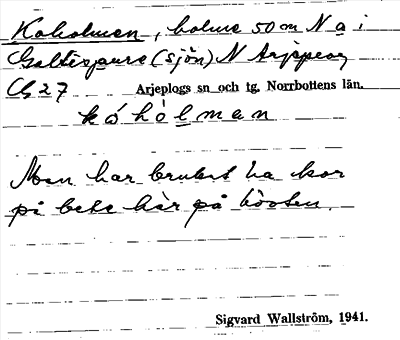 Koholmen, holme 50 m N a i
Galtispure (sjön) N Arjeplog
C 27 Arjeplogs sn och tg. Norrbottens län.
kóhòlman
Man har brukat ha kor
på bete här på hösten.
Sigvard Wallström, 1941.